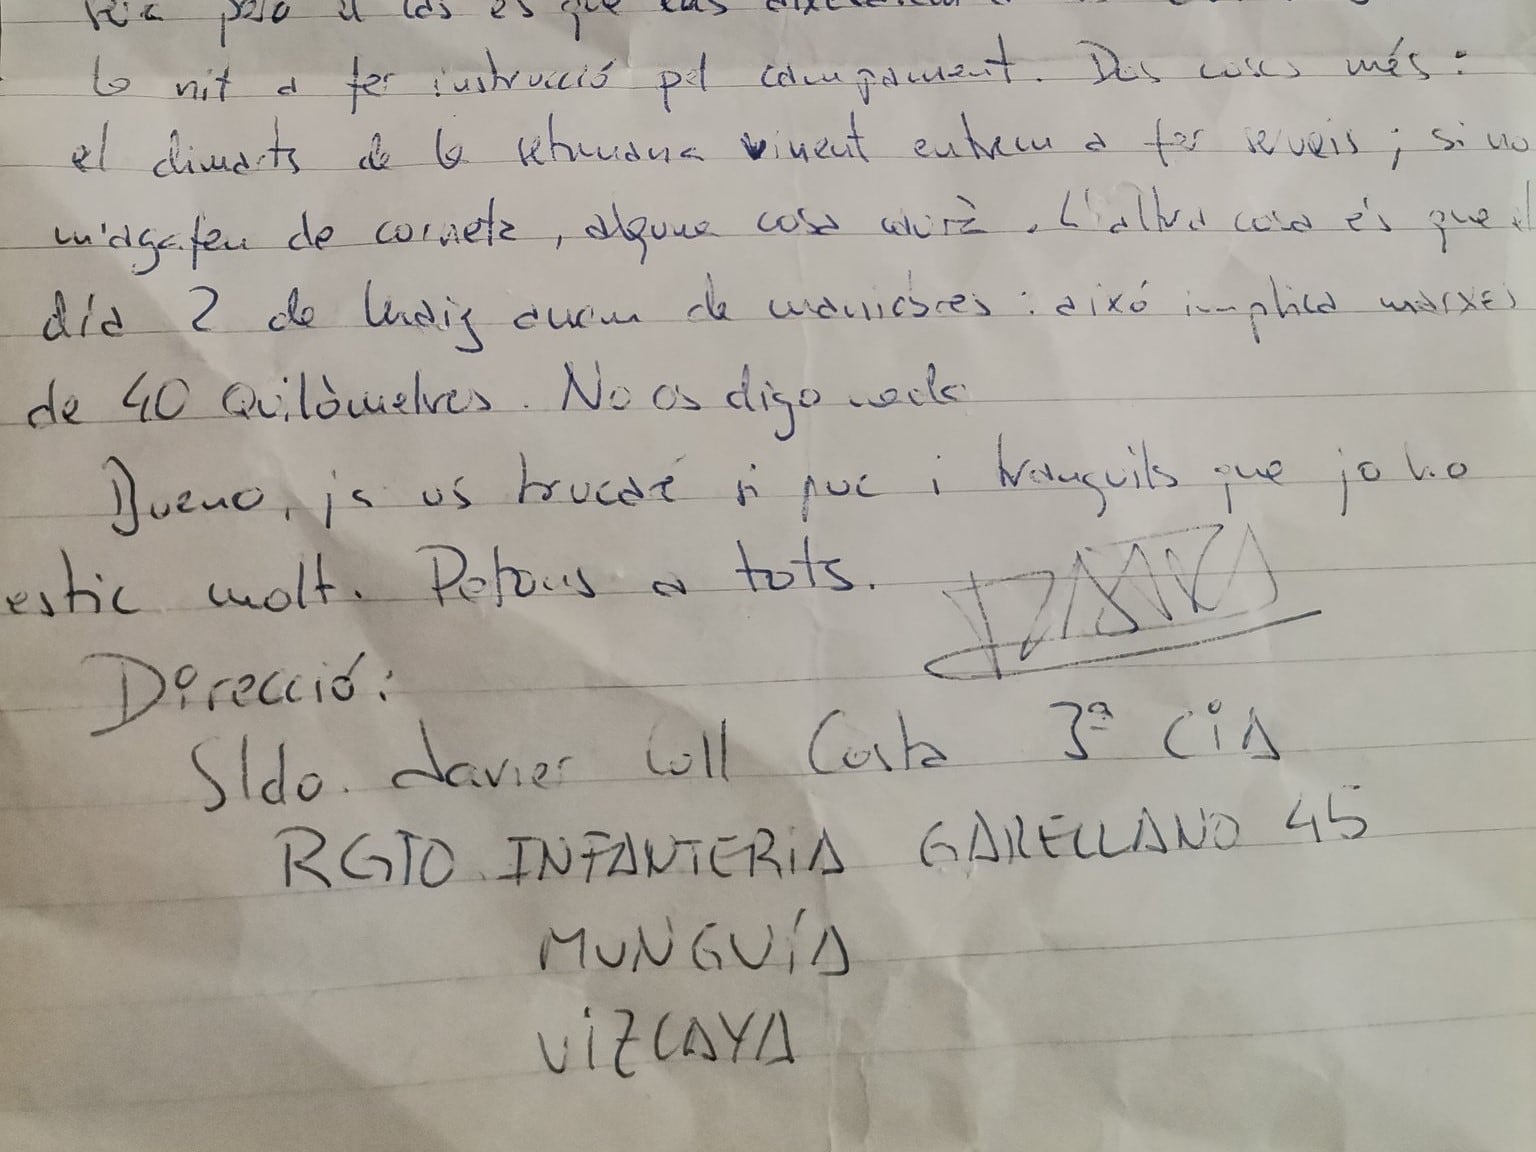 però el cas és que ens
la nit a fer instrucció pel campament. Dos coses més:
el dimarts de la setmana vinent entrem a fer serveis; si no
m'agafen de corneta, alguna cosa caurà. L'altra cosa és que el
día 2 de Maig anem de maniobres: aixó implica marxes
de 40 Quilòmetres. No os digo nada
Bueno, ja us trucaré si puc i tranquils que jo ho
estic molt. Petons a tots.
Direcció:
Sldo. Javier Coll Costa 3ª CiA
RGTO INFANTERiA GARELLANO 45
MUNGUíA
ViZCAYA